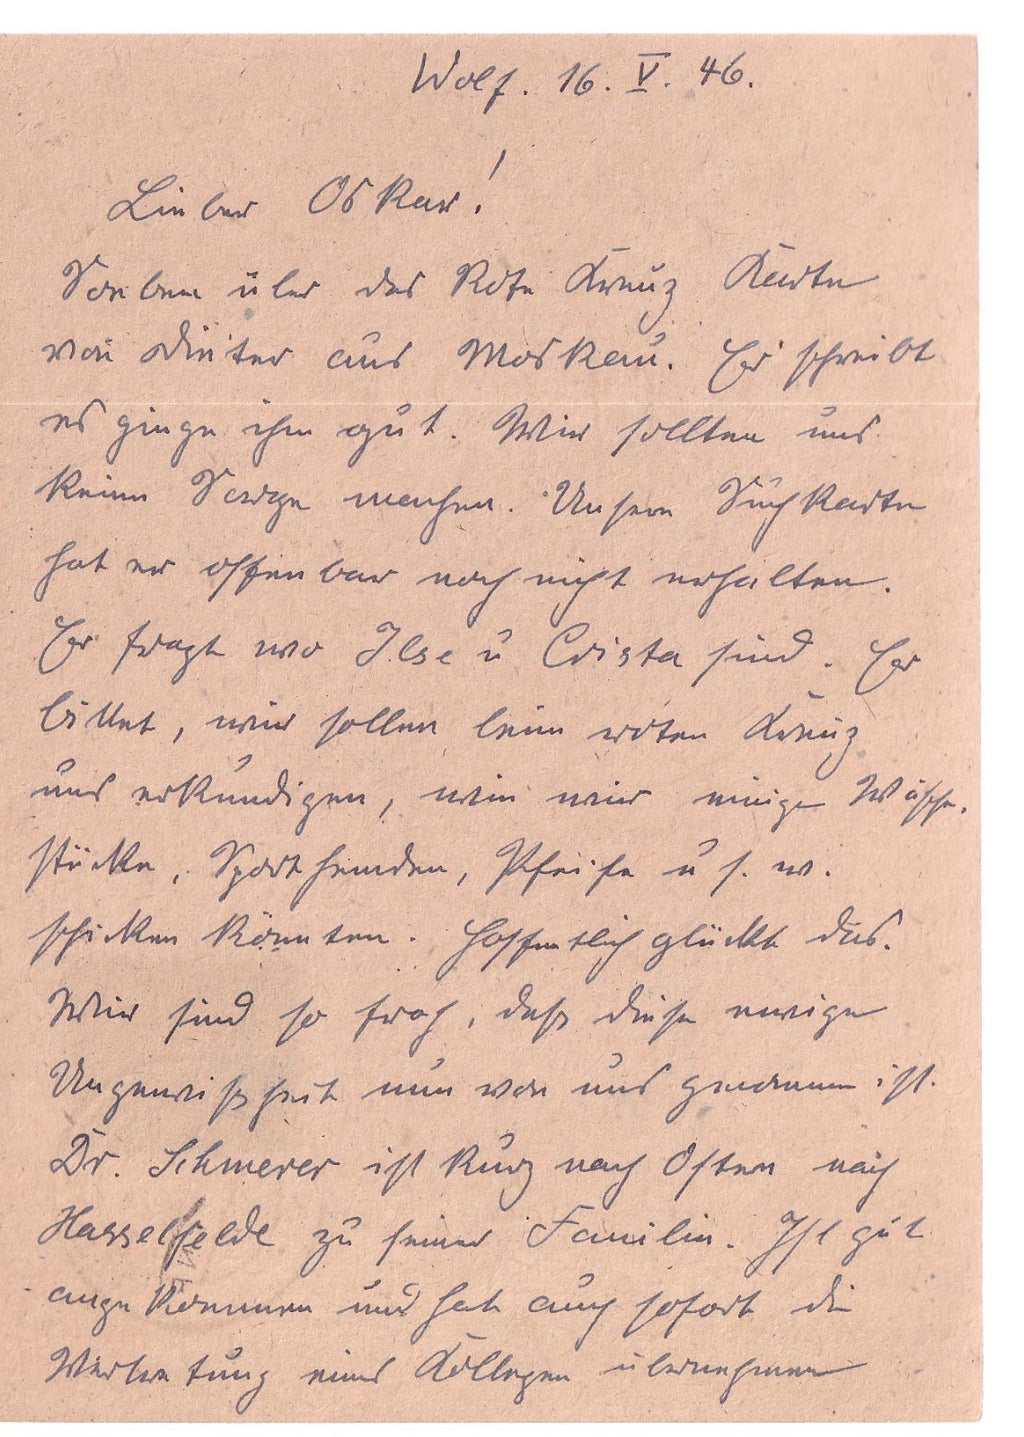 Wolf. 16. V. 46.
Lieber Oskar!
Soeben über das Rote Kreuz Karte
von Dieter aus Moskau. Er schreibt
es ginge ihm gut. Wir sollten uns
keine Sorge machen. Unsere Suchkarte
hat er offenbar noch nicht erhalten.
Er fragt wo Ilse u Crista sind. Er
bittet, wir sollen beim roten Kreuz
uns erkundigen, wie wir einige Wäsche-
stücke, Sporthemden, Pfeife u s. w.
schicken könnten. Hoffentlich glückt das.
Wir sind so froh, daß diese ewige
Ungewißheit nun von uns genommen ist.
Dr. Schmerer ist kurz nach Ostern nach
Hasselfelde zu seiner Familie. Ist gut
angekommen und hat auch sofort die
Vertretung eines Kollegen übernehmen